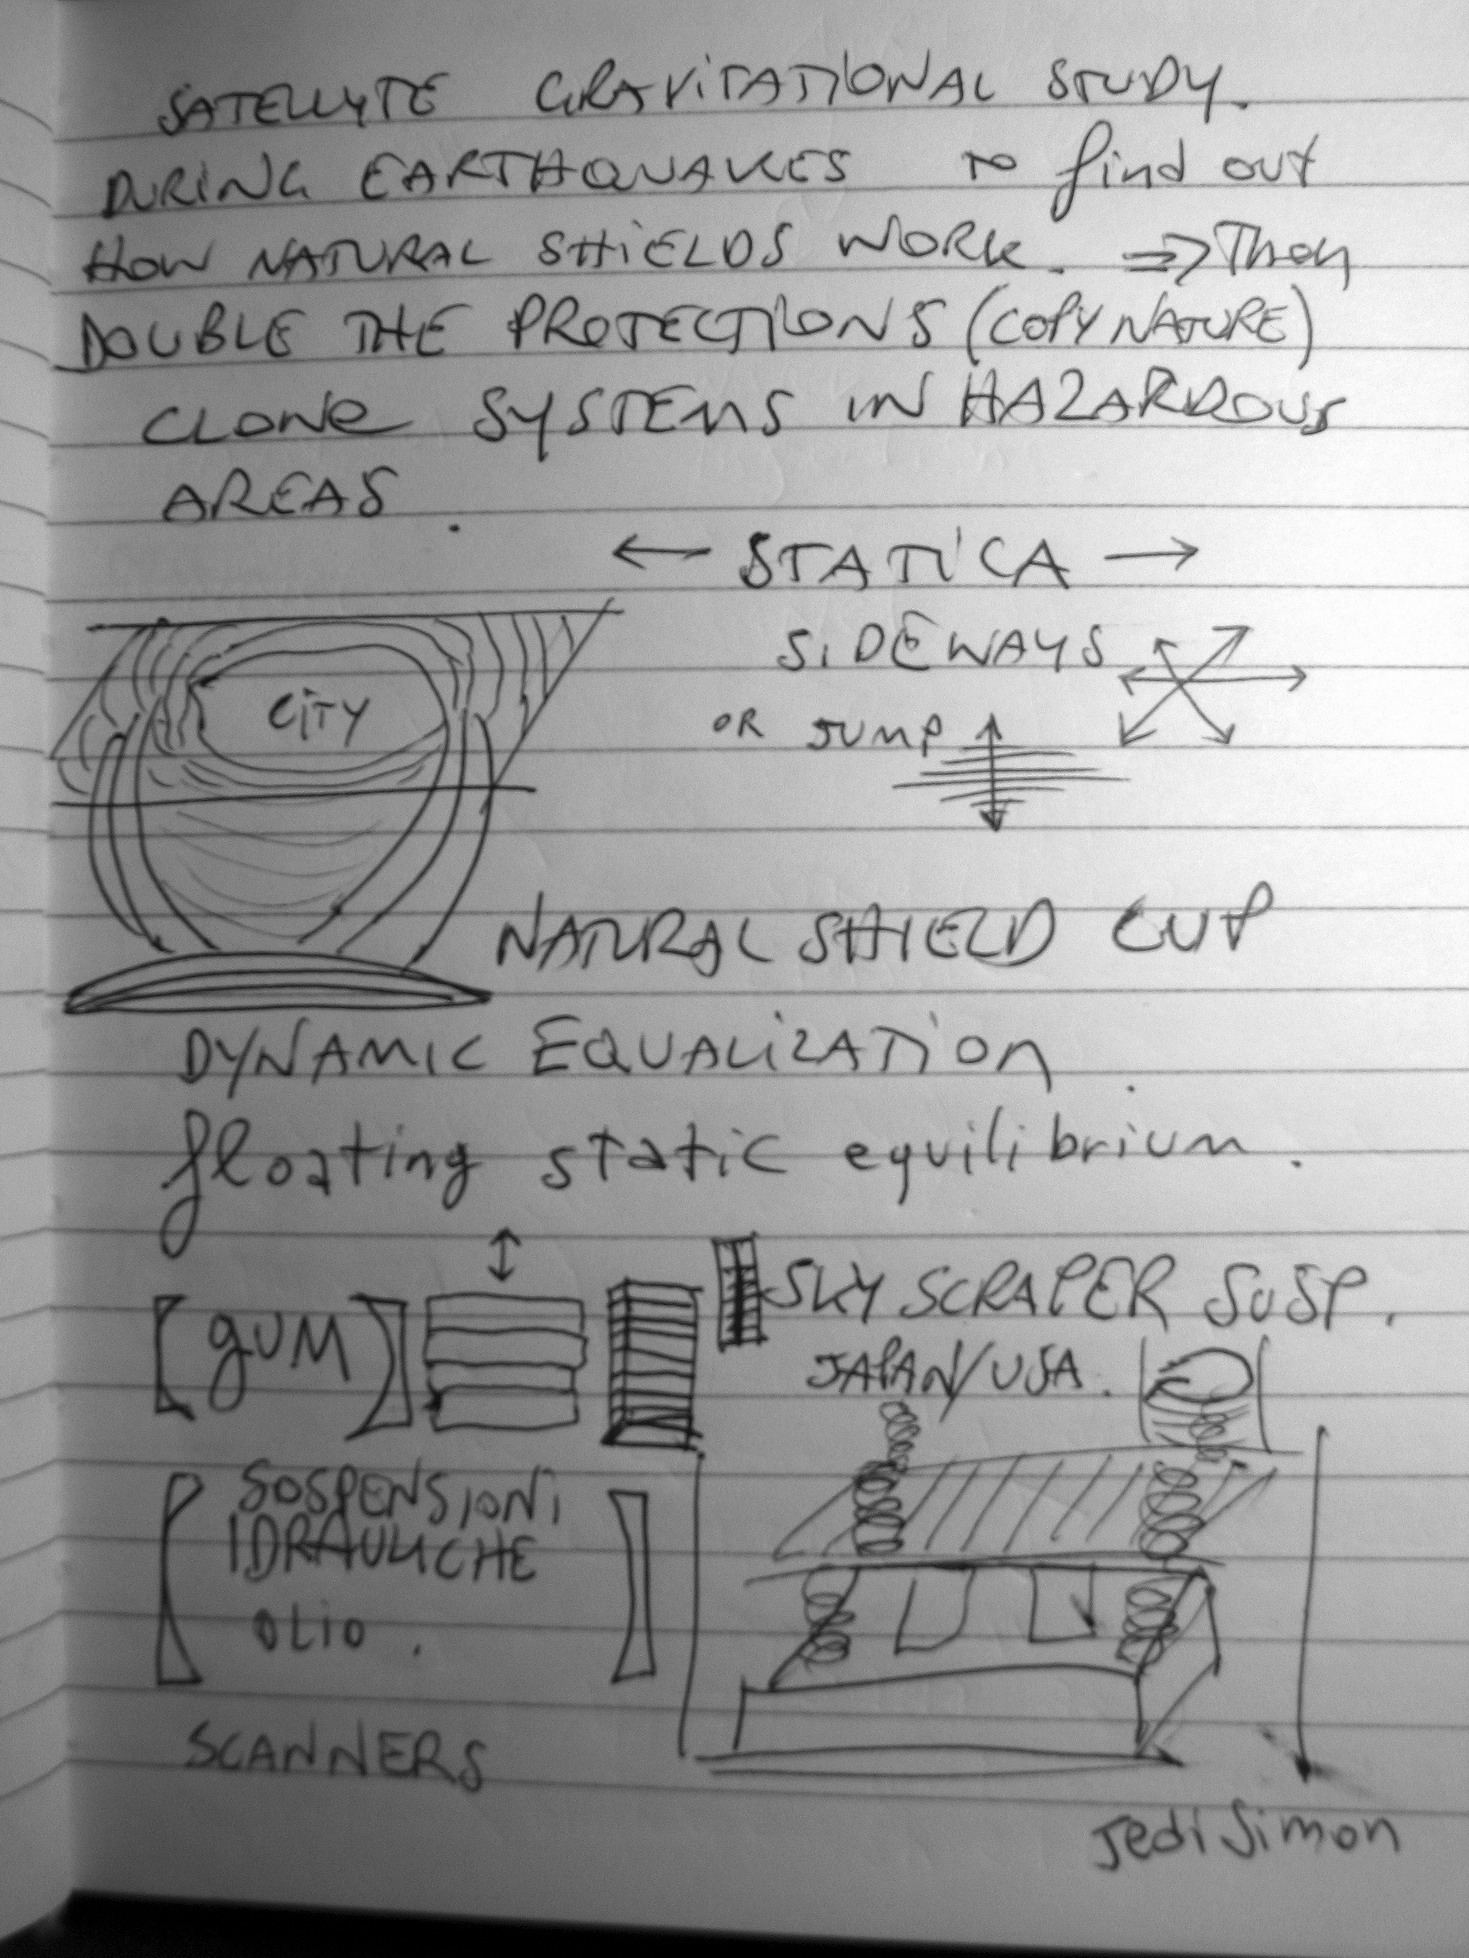 SATELLYTE GRAVITATIONAL STUDY.
DURING EARTHQUAKES TO find out
HOW NATURAL SHIELDS WORK. => Then
DOUBLE THE PROTECTIONS (COPY NATURE)
CLONE SYSTEMS IN HAZARDOUS
AREAS.
← STATICA →
SIDEWAYS
CITY
OR JUMP
NATURAL SHIELD CUP
DYNAMIC EQUALIZATION.
floating static equilibrium.
[gUM]
SKY SCRAPER SUSP.
JAPAN/USA.
[SOSPENSIONI
IDRAULICHE
OLIO.]
SCANNERS
Jedi Simon